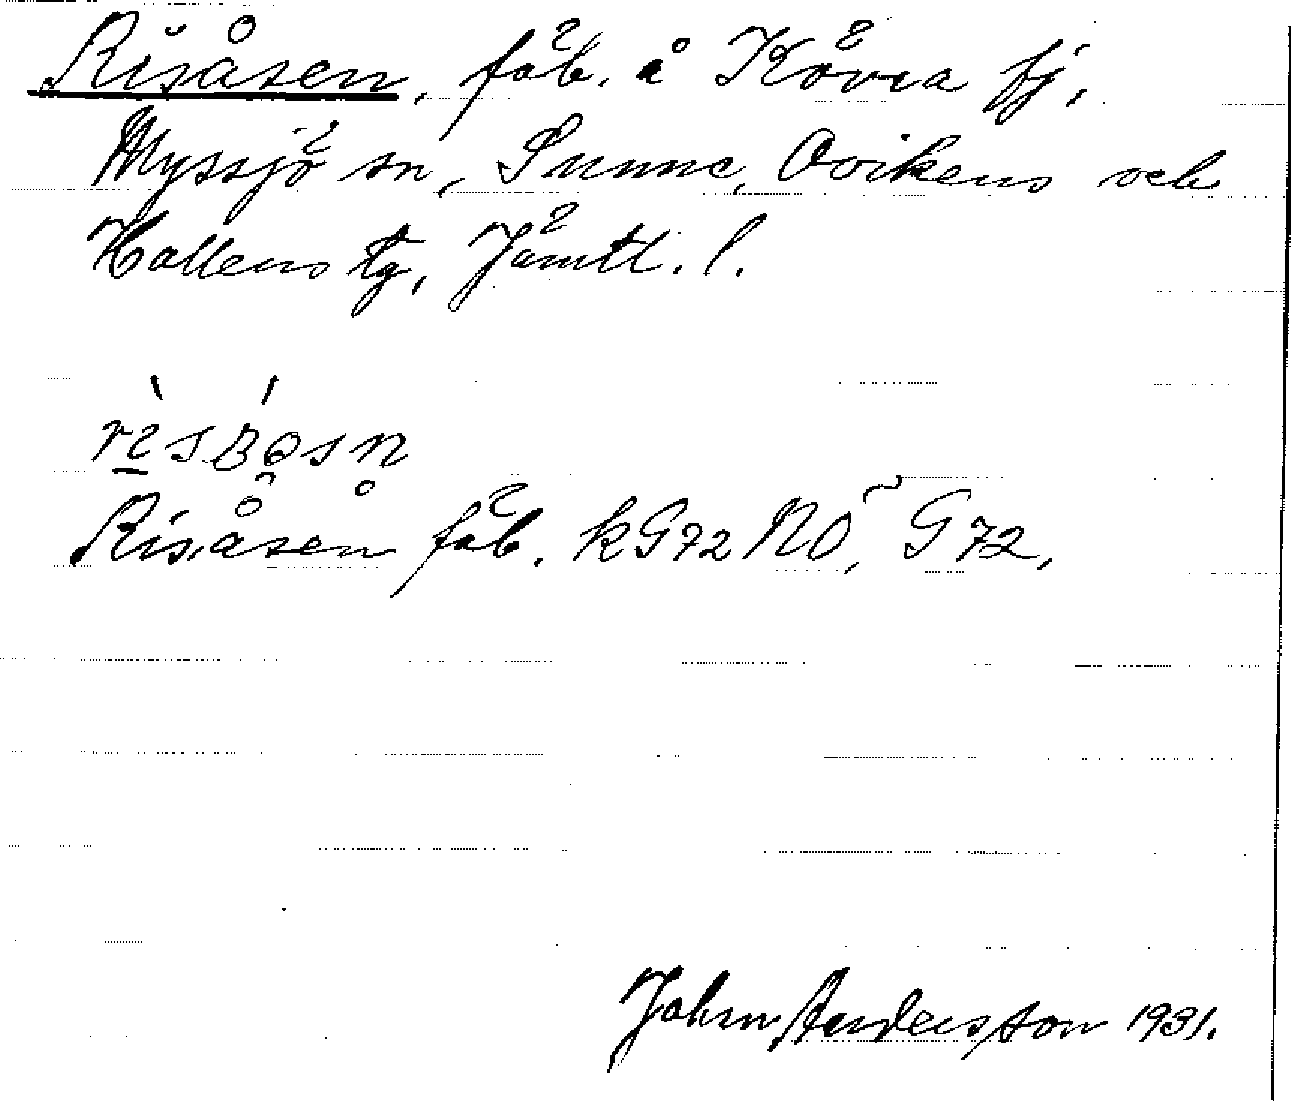 Risåsen, fäb. å Kövra fj,
Myssjö sn, Sunne, Ovikens och
Hallens tg, Jämtl. l.
Risåsen fäb. kG72NÖ, G72,
John Andersson 1931.